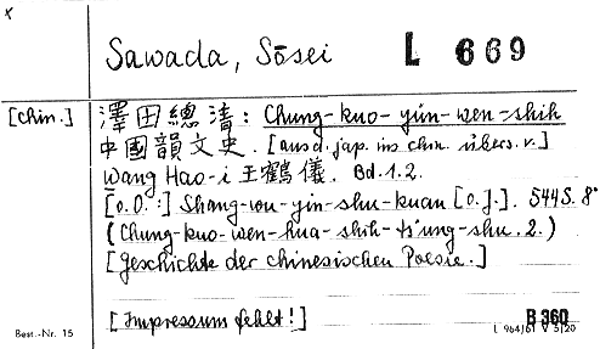 x
Sawada, Sōsei L 669
[Chin.] 澤田總清: Chung-kuo-yün-wen-shih
中國韻文史. [aus d. jap. ins chin. übers. v.]
Wang Hao-i 王鶴儀. Bd. 1.2.
[o.O.:] Shang-wu-yin-shu-kuan [o.J.]. 544 S. 8°
(Chung-kuo-wen-hua-shih-ts'ung-shu. 2.)
[Geschichte der chinesischen Poesie.]
[Impressum fehlt!] B 360
Best.-Nr. 15 L 964/61 V 5/20